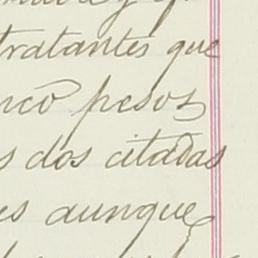 tratantes que
nco pesos
s dos citadas
es aunque